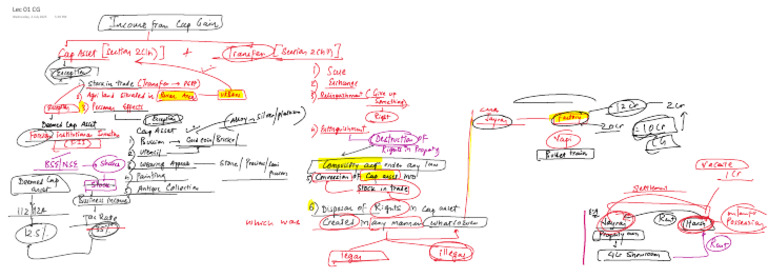 Lec 01 CG
Income from Cap Gain
Cap Asset [Section 2(14)] + Transfer [Section 2(47)]
Exception
1) Stock in trade (Transfer → PGBP)
2) Agri land Situated in Rural Area
Urban
3) Personal Effects
Exception
Exception
Deemed Cap Asset
Foreign Institutional Investor
FII
BSE/NSE → Shares
Deemed Cap asset
Stock
Business Income
Tax Rate
112
12.5%
Cap Asset
Silver/platinum
1) Bullion → Gold coin/Bricks/
2) Utensil
3) Wearing Apparel
Stone/Precious/Semi precious
4) Painting
5) Antique Collection
1) Sale
2) Exchange
3) Relinquishment (Give up Something)
Right
4) Extinguishment
Destruction of Rights in Property
Compulsory acq under any law
5) Conversion of Cap asset into
Stock in trade
6) Disposal of Rights in Cap asset
which was Created in any manner whatsoever
legal
illegal
Factory
12 Cr
2 Cr
20 Cr
= 10 Cr
CG
Bullet train
Vacate
1 Cr
Settlement
Eg
Rent
Property own
Possession
Rent
Showroom